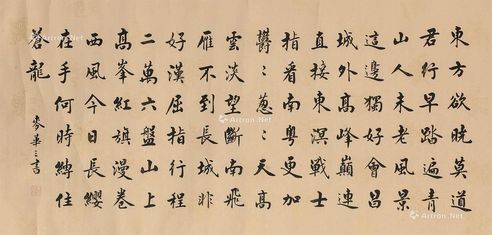 東方欲曉莫道
君行早踏遍青
山人未老風景
這邊獨好會昌
城外高峰巔連
直接東溟戰士
指看南粵更加
鬱：蔥：天高
雲淡望斷南飛
雁不到長城非
好漢屈指行程
二萬六盤山上
高峯紅旗漫卷
西風今日長纓
在手何時縛住
蒼龍
麥華三書